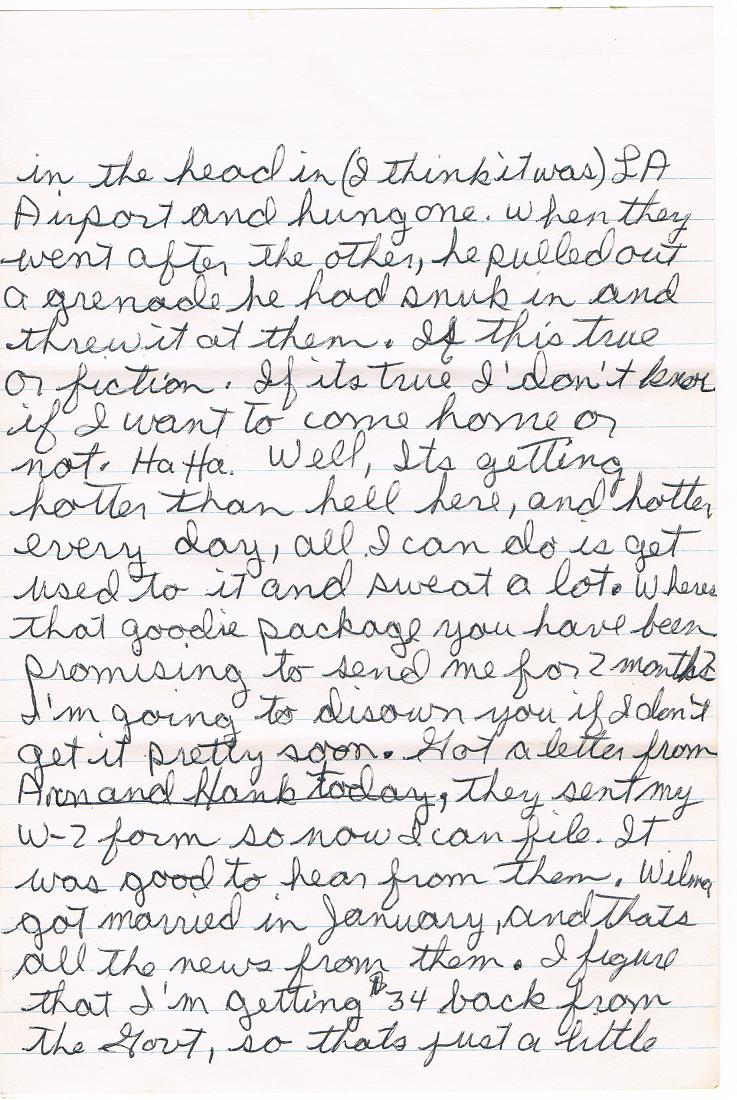 in the head in (I think it was) LA
Airport and hung one. When they
went after the other, he pulled out
a grenade he had snuk in and
threw it at them. If this true
or fiction. If its true I don't know
if I want to come home or
not. Ha Ha. Well, Its getting
hotter than hell here, and hotter
every day, all I can do is get
used to it and sweat a lot. Wheres
that goodie package you have been
promising to send me for 2 months?
I'm going to disown you if I don't
get it pretty soon. Got a letter from
Ann and Hank today, they sent my
W-2 form so now I can file. It
was good to hear from them. Wilma
got married in January, and thats
all the news from them. I figure
that I'm getting $34 back from
the Govt, so thats just a little